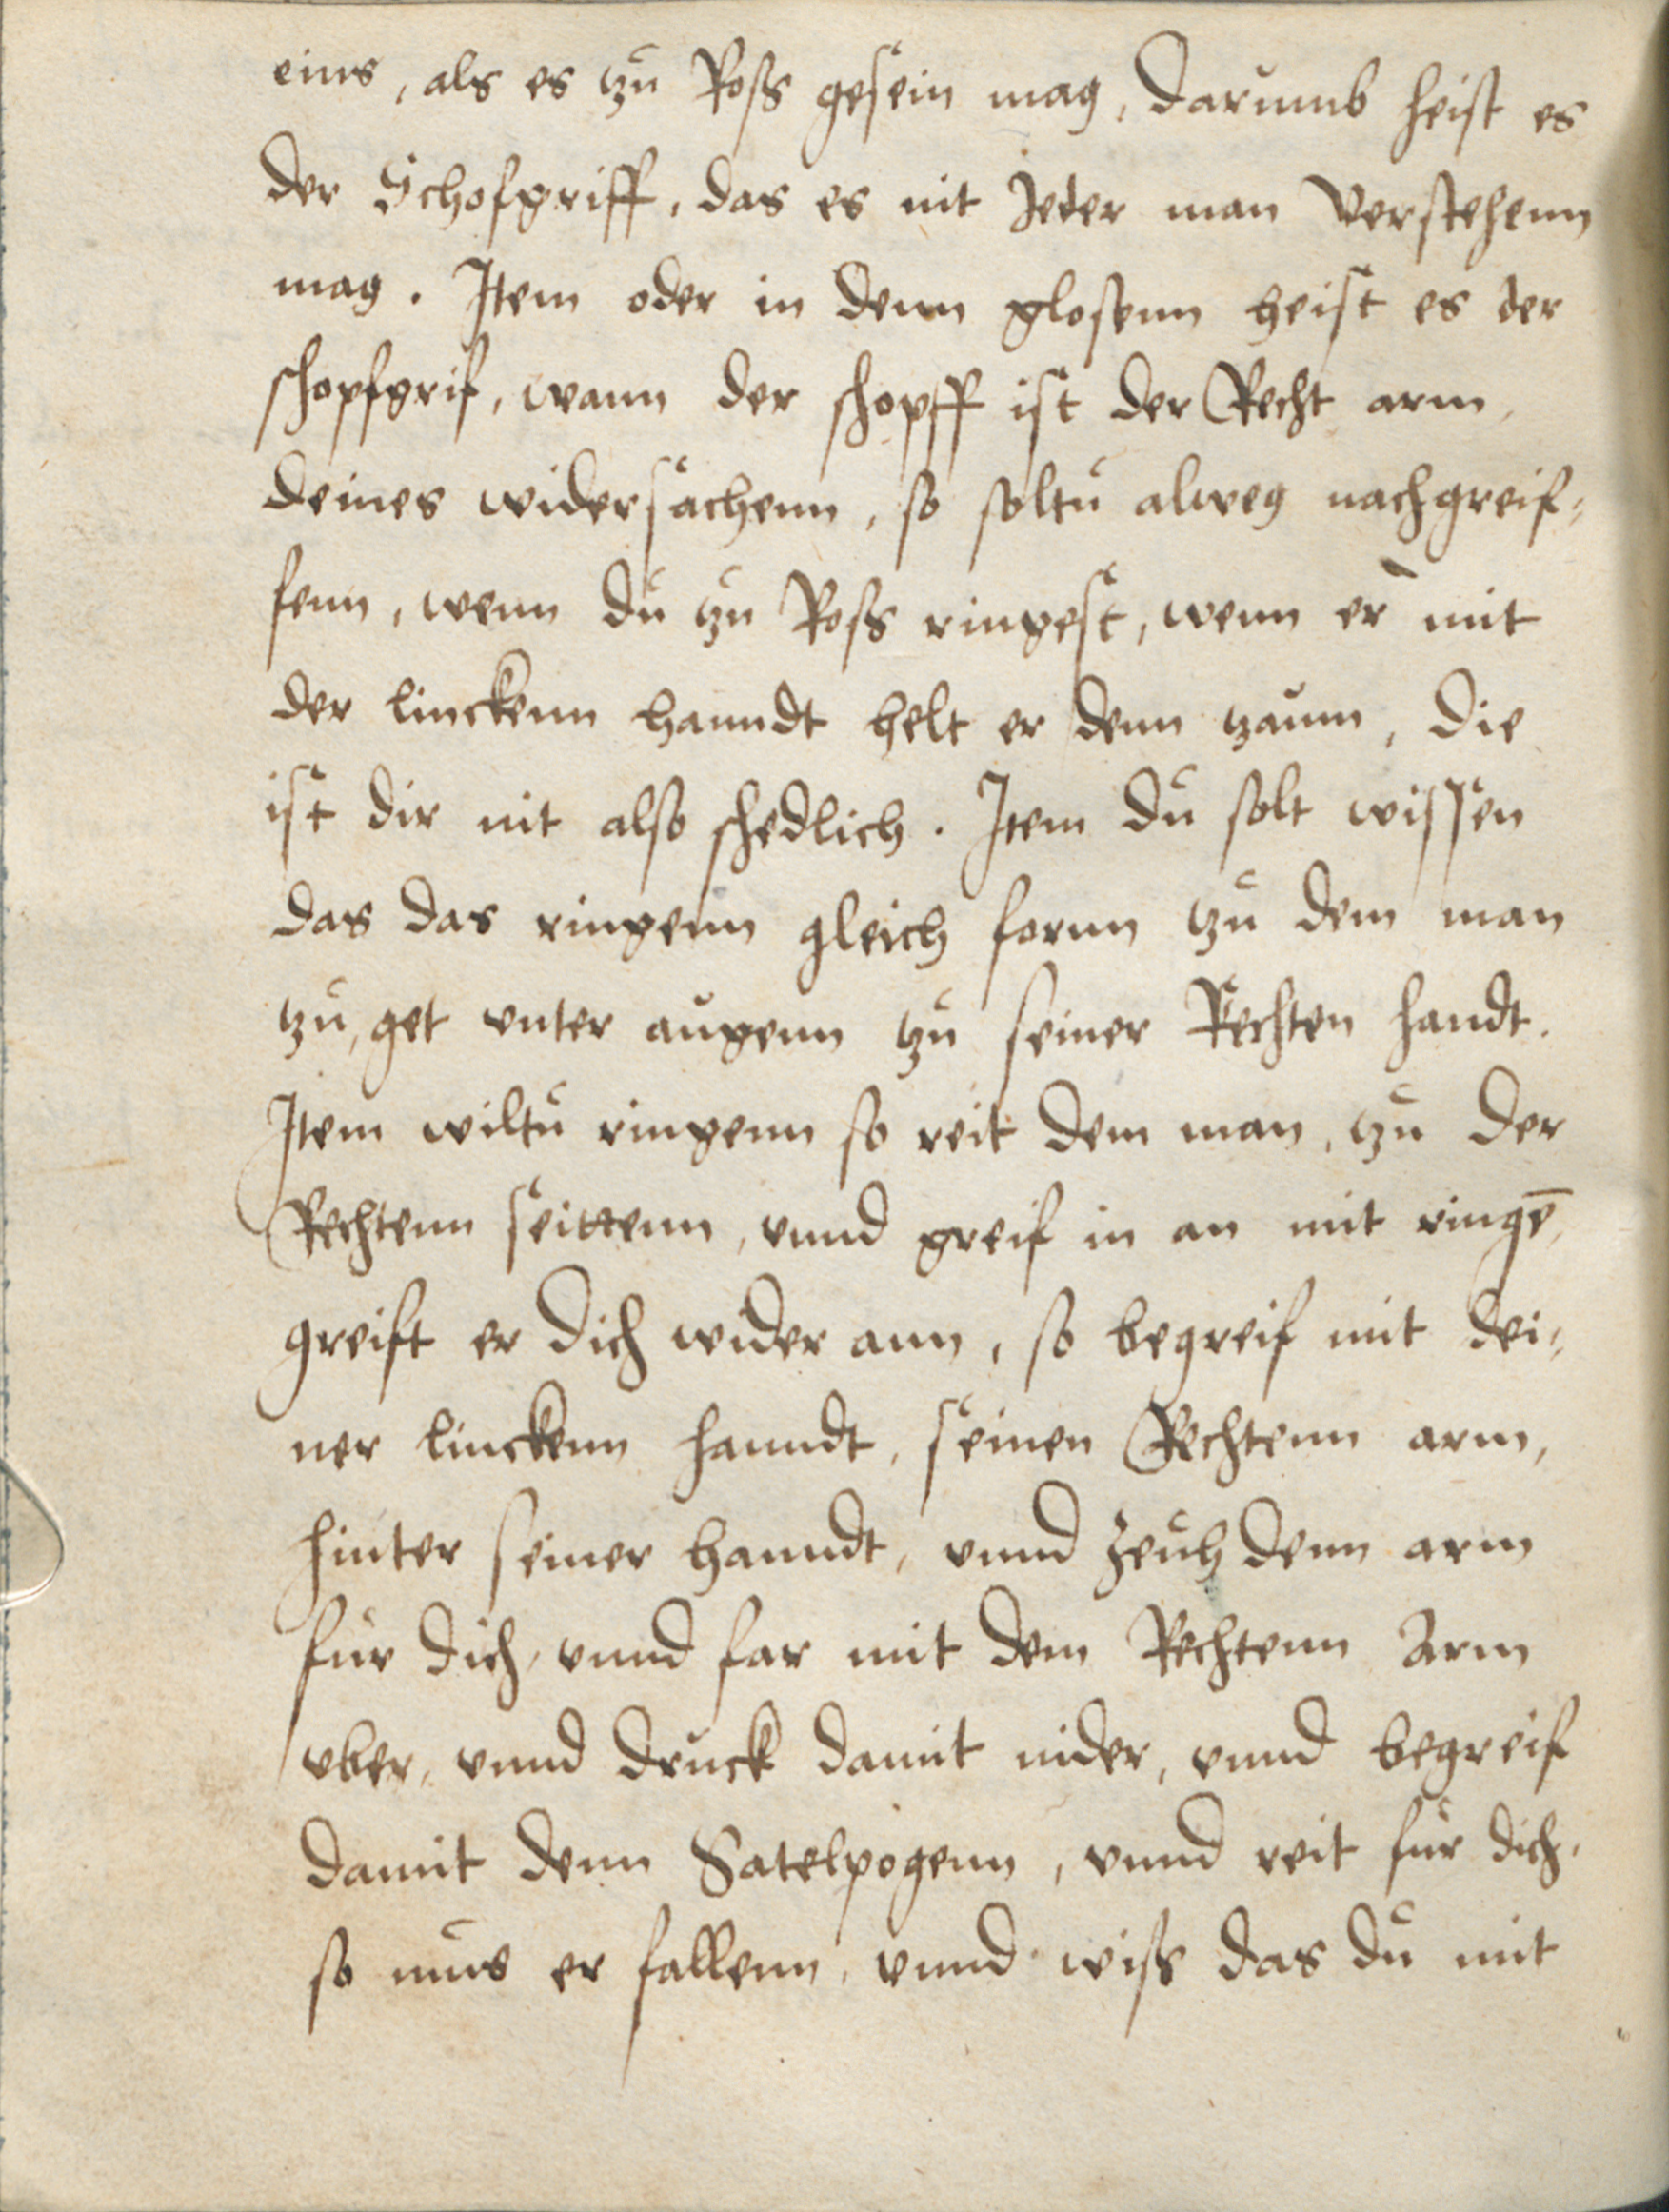 eins, als es tzu Ross gesein mag, darumb heist es
der Schofgriff, das es nit Jeder man Verstehenn
mag. Item oder in denn glosenn heist es der
schopfgrif, wann der schopff ist der Recht arm,
deines widersachenn, so soltu alweg nachgreif-
fenn, wenn du tzu Ross ringest, wenn er mit
der linckenn hanndt helt er denn tzaum, die
ist dir nit also schedlich. Item du solt wissen
das das ringenn gleich fornn tzu dem man
tzu, get vnter augenn tzu seiner Rechten handt.
Item wiltu ringenn so reit dem man, tzu der
Rechtenn seittenn, vnnd greif in an mit ringē,
greift er dich wider ann, so begreif mit dei-
ner linckenn hanndt, seinen Rechtenn arm,
hinter seiner hanndt, vnnd zeuh denn arm
fur dich, vnnd far mit dem Rechtenn Arm
vber, vnnd druck damit nider, vnnd begreif
damit denn Satelpogenn, vnnd reit fur dich,
so mus er fallenn, vnnd wiss das du mit